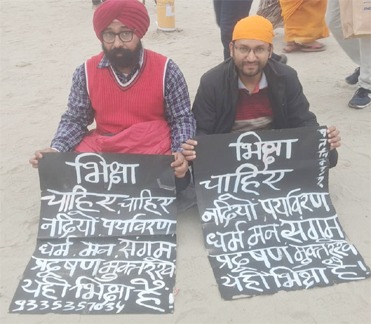 भिक्षा
चाहिए, चाहिए
नदियों, पर्यावरण
धर्म, मन, संगम
प्रदूषण मुक्त रखें
यही भिक्षा है!
9335357034
भिक्षा
चाहिए
नदियों, पर्यावरण
धर्म मन संगम
प्रदूषण मुक्त रखें
यही भिक्षा है!